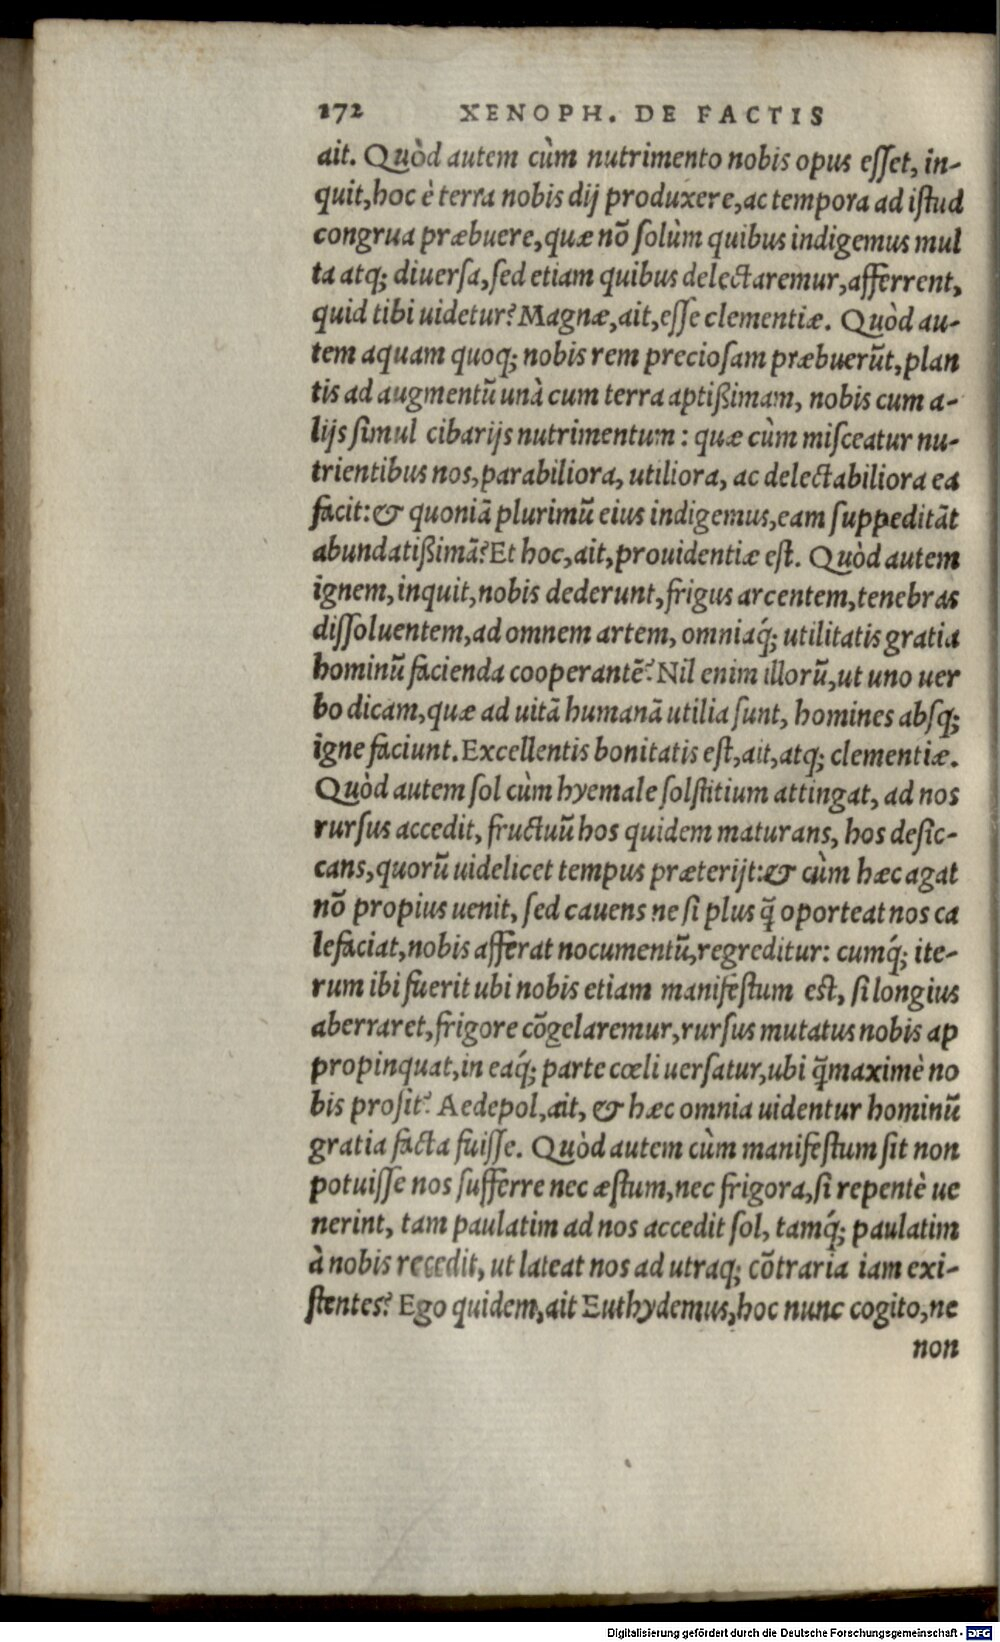 172 XENOPH. DE FACTIS
ait. Quòd autem cùm nutrimento nobis opus eſſet, in-
quit, hoc è terra nobis dij produxere, ac tempora ad iſtud
congrua præbuere, quæ nō ſolùm quibus indigemus mul
ta atq; diuerſa, ſed etiam quibus delectaremur, afferrent,
quid tibi uidetur? Magnæ, ait, eſſe clementiæ. Quòd au-
tem aquam quoq; nobis rem precioſam præbuerūt, plan
tis ad augmentū unà cum terra aptißimam, nobis cum a-
lijs ſimul cibarijs nutrimentum: quæ cùm miſceatur nu-
trientibus nos, parabiliora, utiliora, ac delectabiliora ea
facit: & quoniā plurimū eius indigemus, eam ſuppeditāt
abundatißimā? Et hoc, ait, prouidentiæ eſt. Quòd autem
ignem, inquit, nobis dederunt, frigus arcentem, tenebras
diſſoluentem, ad omnem artem, omniaq́; utilitatis gratia
hominū facienda cooperantē? Nil enim illorū, ut uno uer
bo dicam, quæ ad uitā humanā utilia ſunt, homines abſq;
igne faciunt. Excellentis bonitatis eſt, ait, atq; clementiæ.
Quòd autem ſol cùm hyemale ſolſtitium attingat, ad nos
rurſus accedit, fructuū hos quidem maturans, hos deſic-
cans, quorū uidelicet tempus præterijt: & cùm hæc agat
nō propius uenit, ſed cauens ne ſi plus q̄ oporteat nos ca
lefaciat, nobis afferat nocumentū, regreditur: cumq́; ite-
rum ibi fuerit ubi nobis etiam manifeſtum est, ſi longius
aberraret, frigore cōgelaremur, rurſus mutatus nobis ap
propinquat, in eaq́; parte cœli uerſatur, ubi q̄maximè no
bis proſit? Aedepol, ait, & hæc omnia uidentur hominū
gratia facta fuiſſe. Quòd autem cùm manifeſtum ſit non
potuiſſe nos ſufferre nec æſtum, nec frigora, ſi repentè ue
nerint, tam paulatim ad nos accedit ſol, tamq́; paulatim
à nobis recedit, ut lateat nos ad utraq; cōtraria iam exi-
ſtentes? Ego quidem, ait Euthydemus, hoc nunc cogito, ne
non
Digitalisierung gefördert durch die Deutsche Forschungsgemeinschaft - DFG